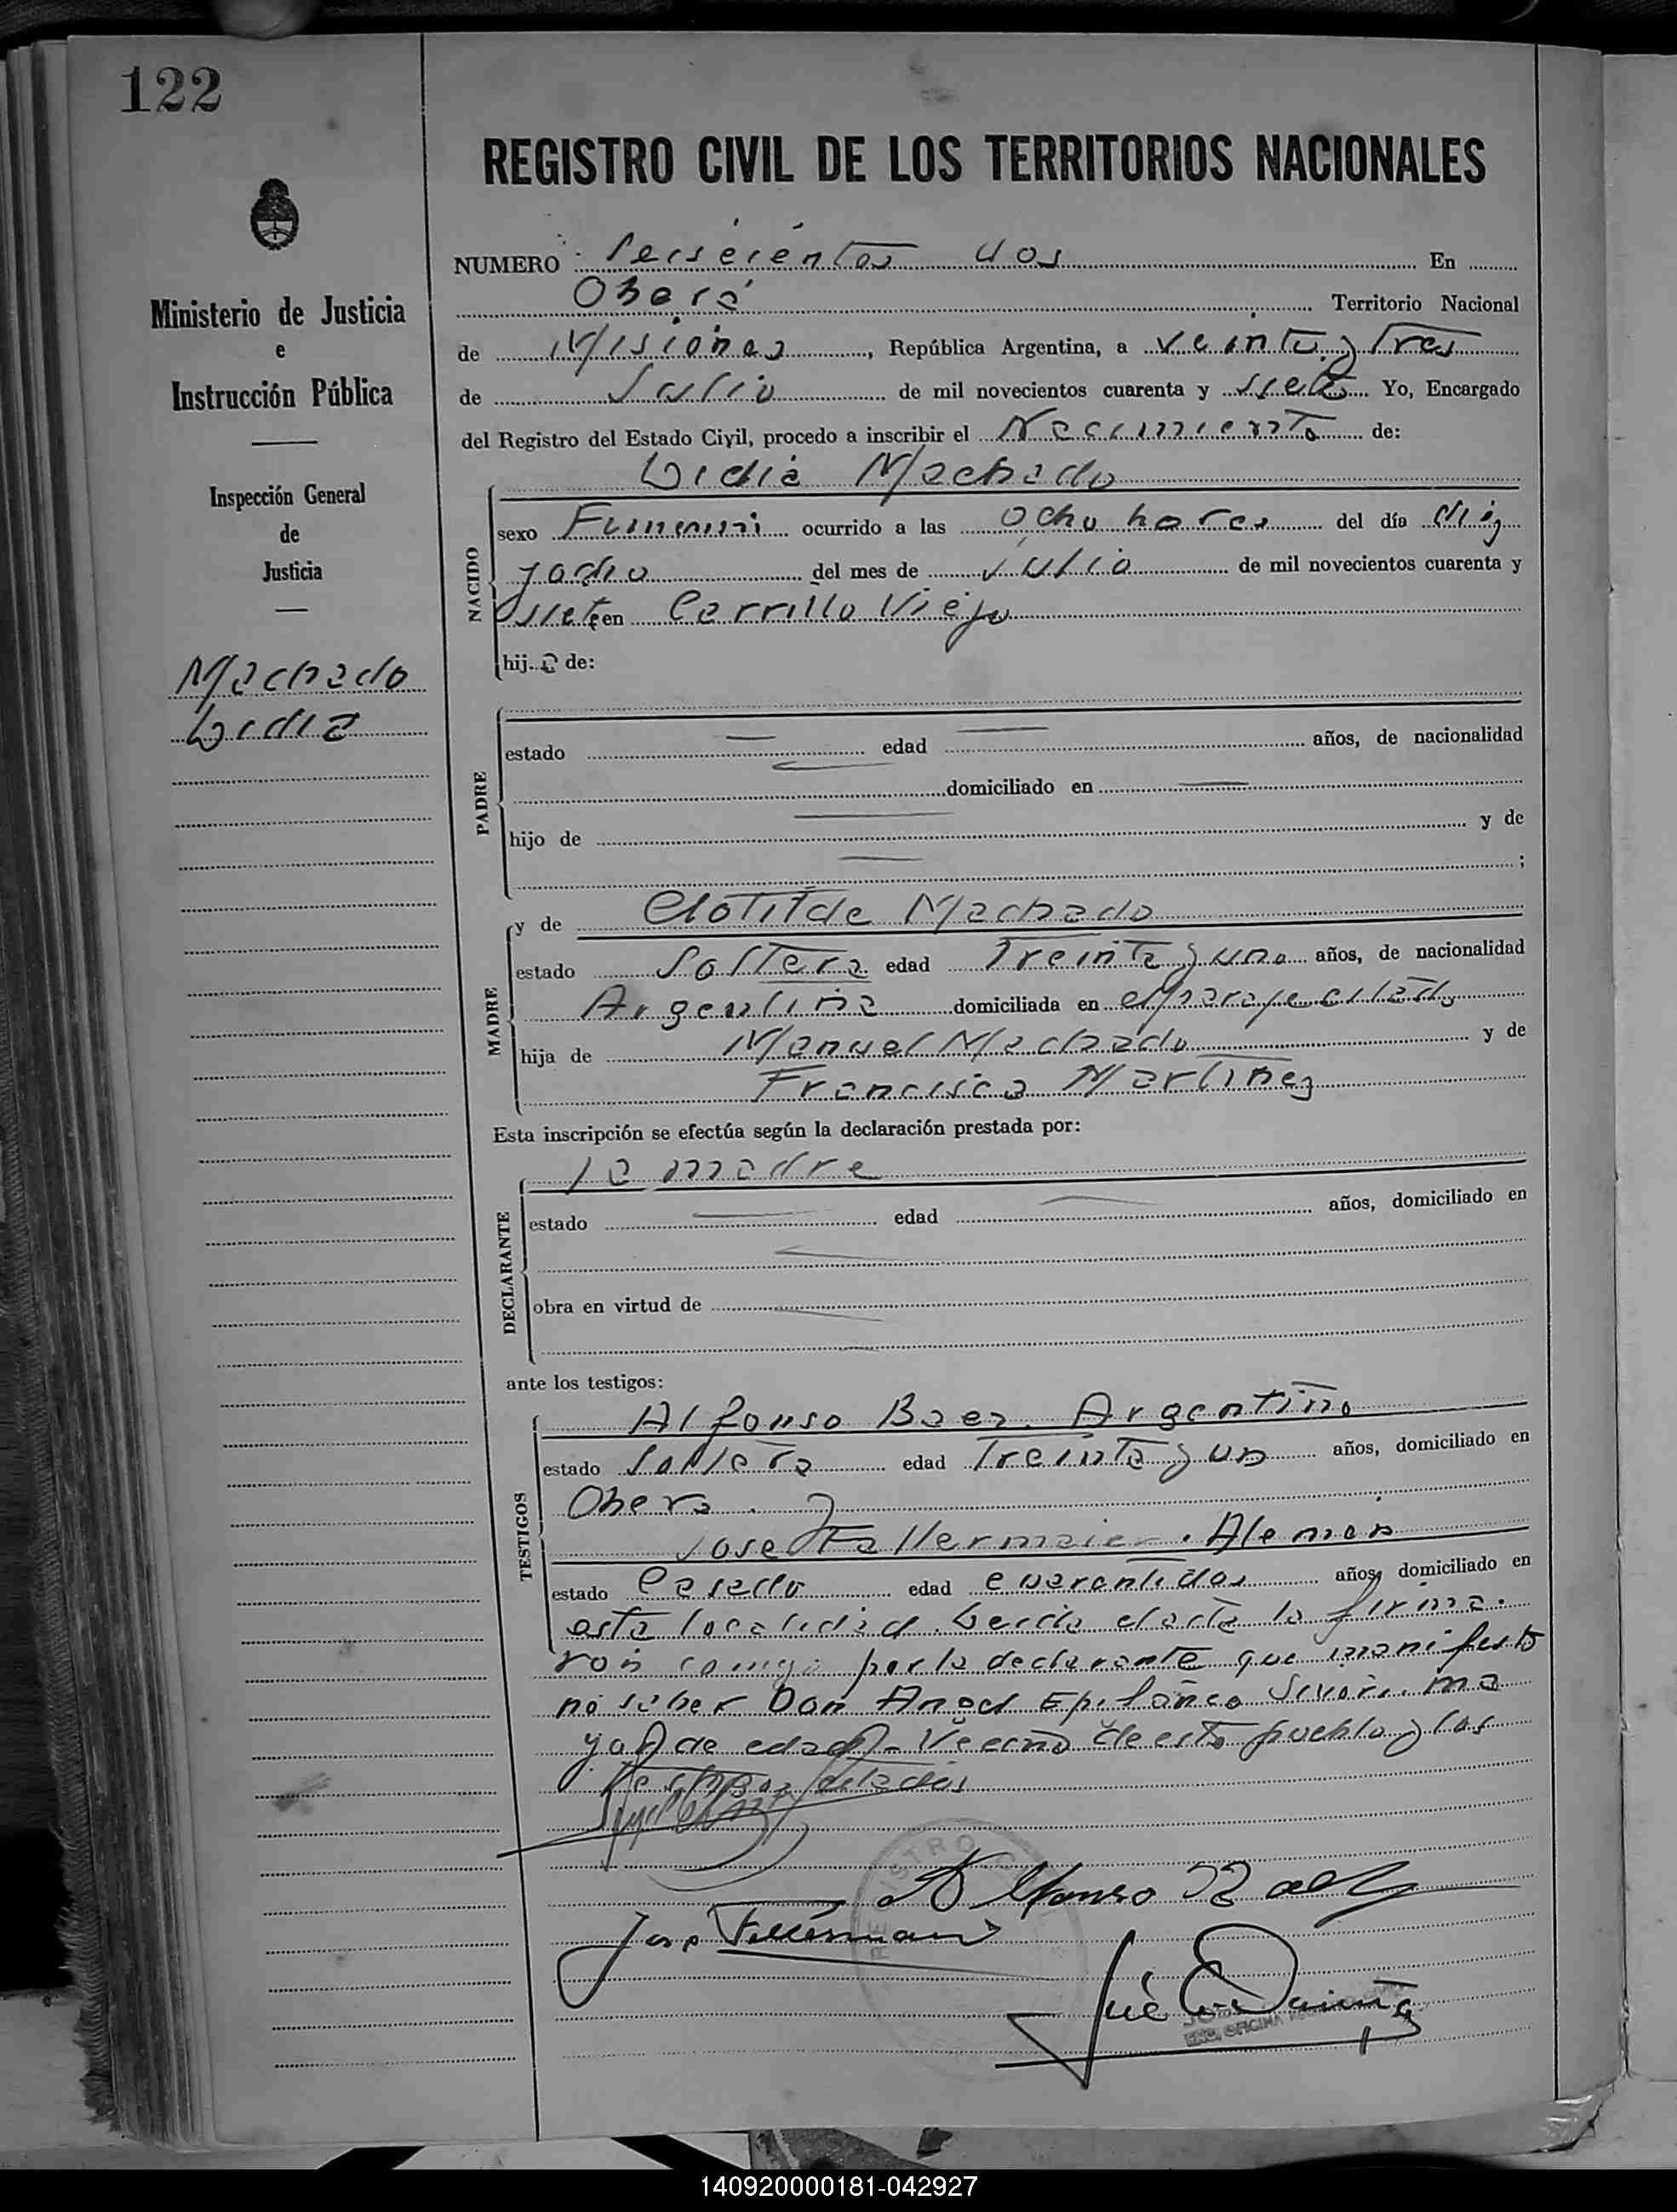 122
REGISTRO CIVIL DE LOS TERRITORIOS NACIONALES
Ministerio de Justicia
e
Instrucción Pública
Inspección General
de
Justicia
Machado
Lidia
NUMERO Seiscientos dos En
Oberá Territorio Nacional
de Misiones, República Argentina, a veinte y tres
de Julio de mil novecientos cuarenta y siete Yo, Encargado
del Registro del Estado Civil, procedo a inscribir el Nacimiento de:
Lidia Machado
NACIDO
sexo ocurrido a las ocho horas del día diez
y ocho del mes de Julio de mil novecientos cuarenta y
siete en Cerrillo Viejo
hija de:
PADRE
estado edad años, de nacionalidad
domiciliado en
hijo de y de
;
MADRE
y de Clotilde Machado
estado Soltera edad Treinta y una años, de nacionalidad
Argentina domiciliada en el paraje citado
hija de Manuel Machado y de
Francisca Martinez
Esta inscripción se efectúa según la declaración prestada por:
la madre
DECLARANTE
estado edad años, domiciliado en
obra en virtud de
ante los testigos:
TESTIGOS
Alfonso Baez. Argentino
estado Soltero edad Treinta y un años, domiciliado en
Obera. y
Jose Fallermaier. Aleman
estado Casado edad cuarentidos años, domiciliado en
esta localidad. Leida el acta la firma.
ron conmigo por la declarante que manifesto
no saber Don Angel Epifaneo Sivori. ma
yor de edad - Vecino de este pueblo y los
testigos citados
Alfonso Baez
Jose
REGISTRO
ENC. OFICINA
140920000181-042927